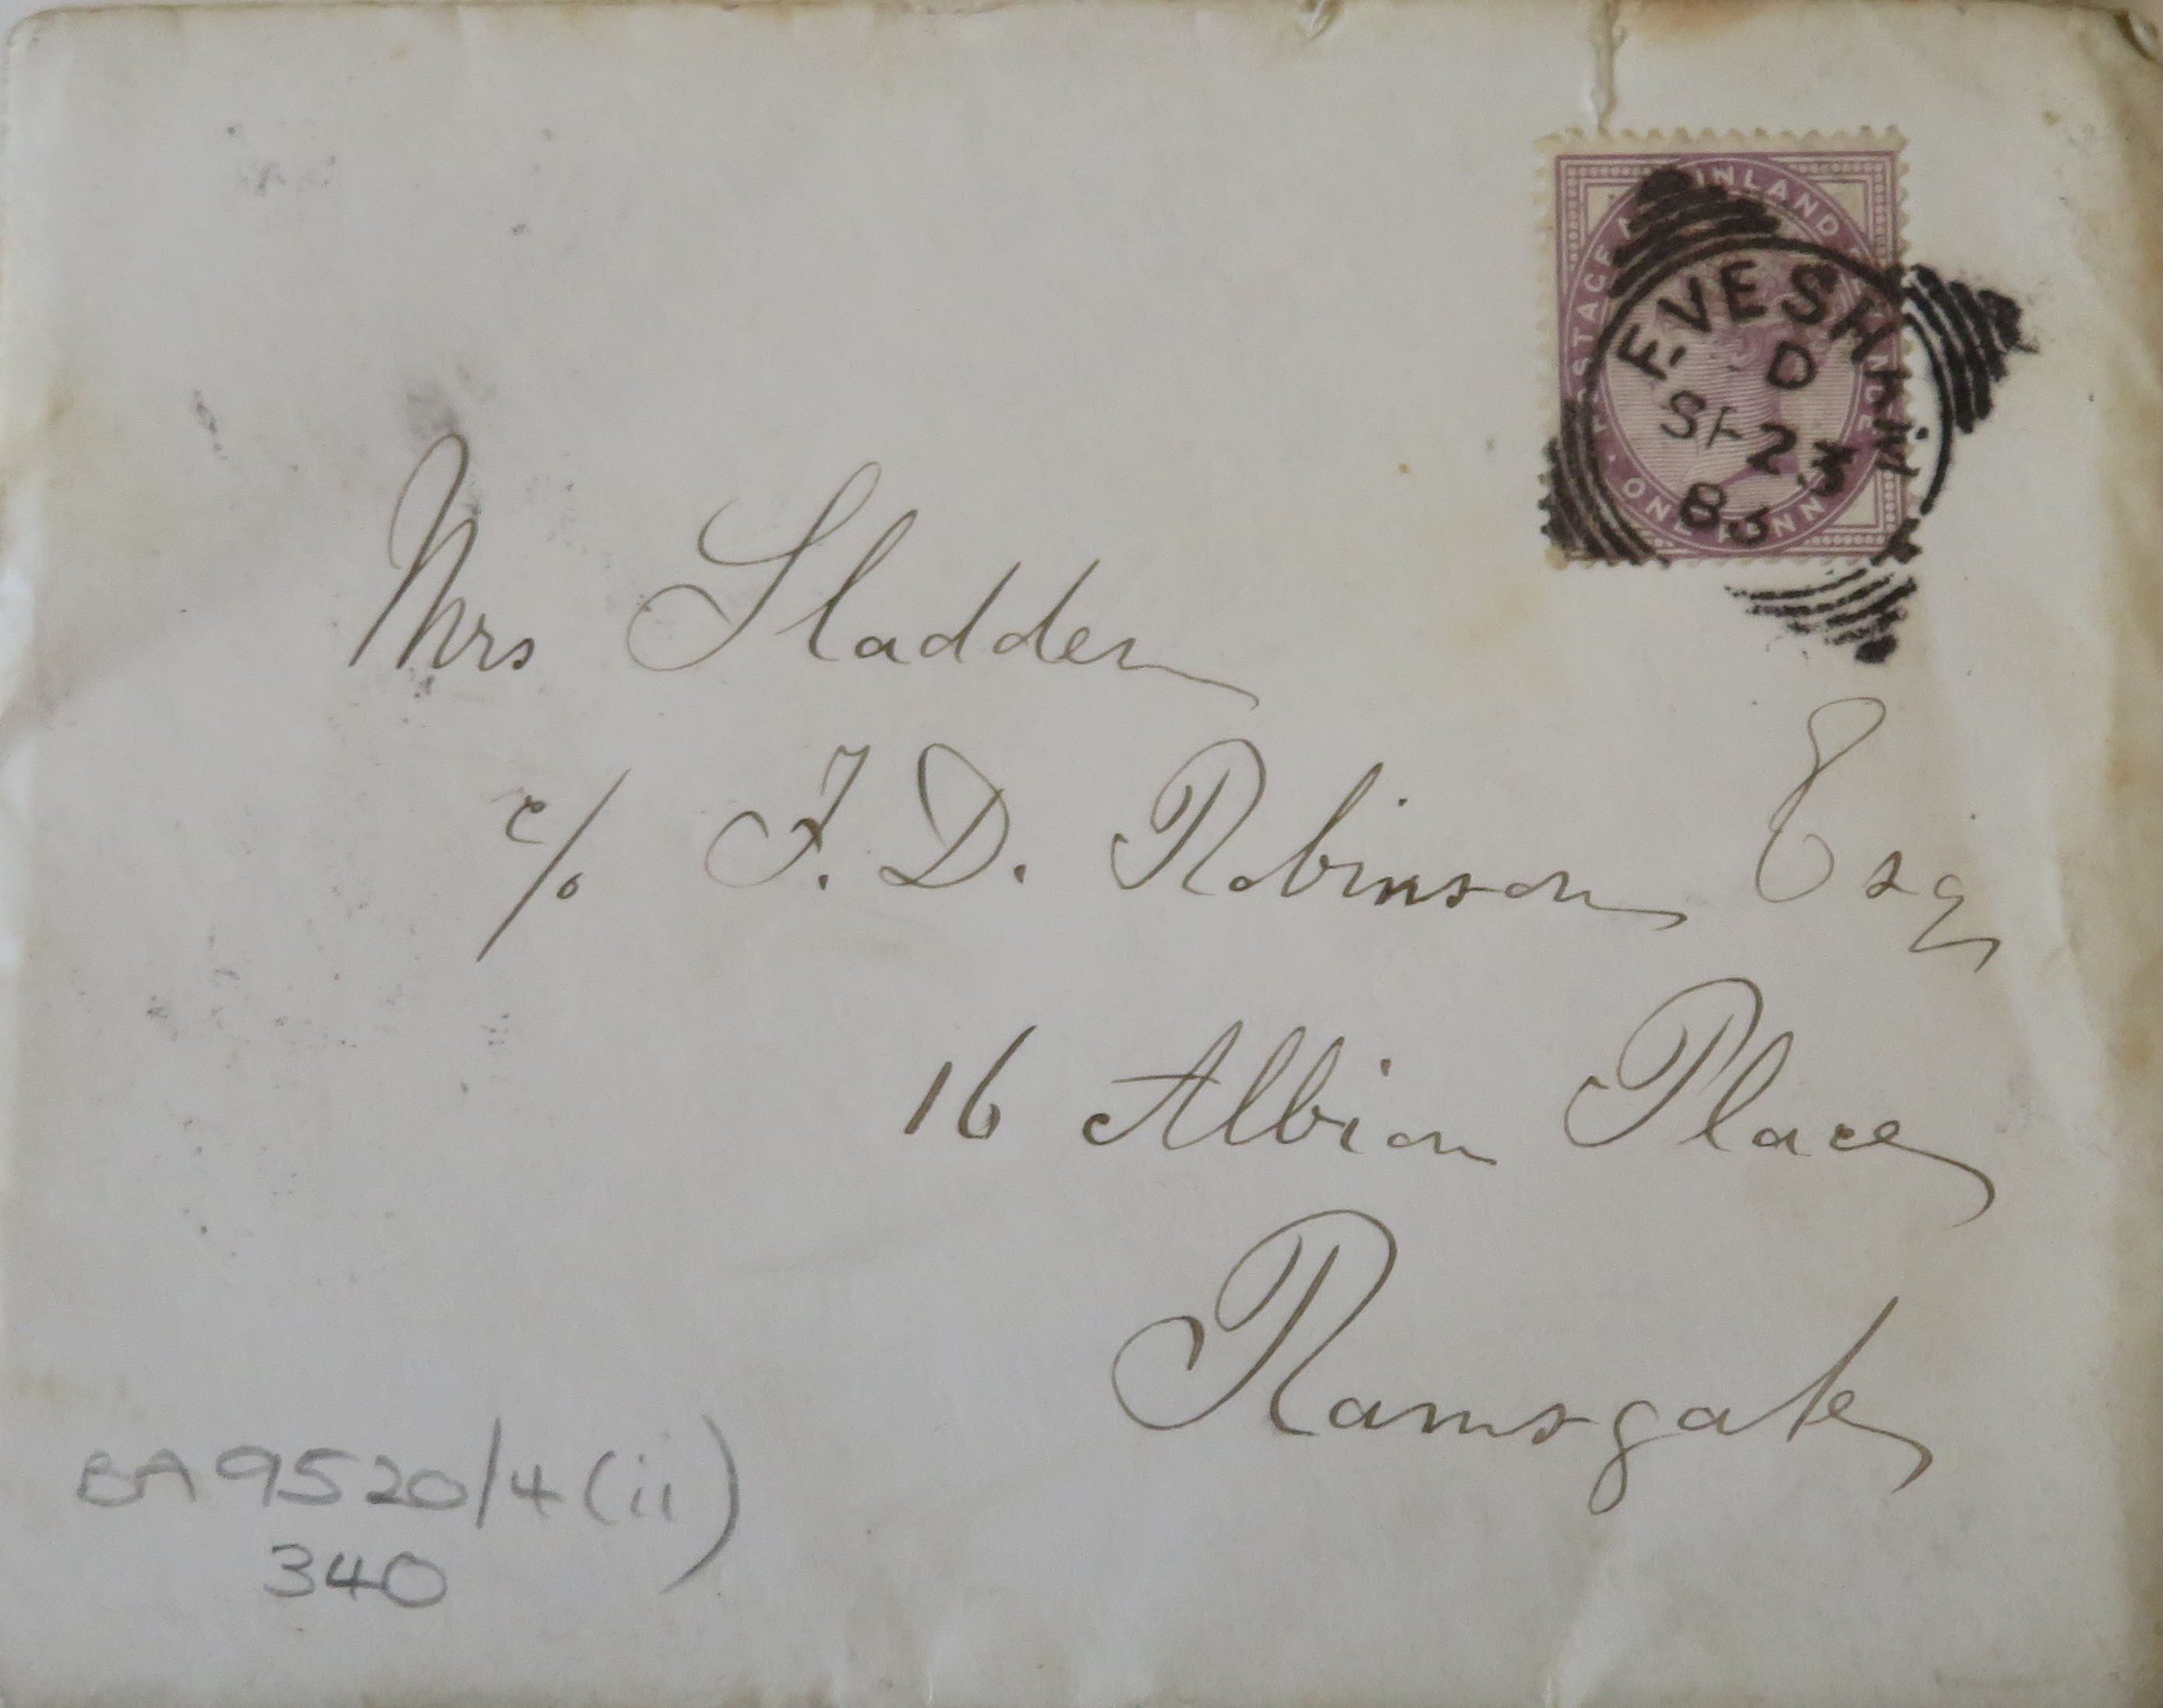 POSTAGE INLAND
ONE PENNY
EVESHAM
D
SP 23
Mrs Sladden
c/o F. D. Robinson Esq
16 Albion Place
Ramsgate
BA 9520/4 (ii)
340